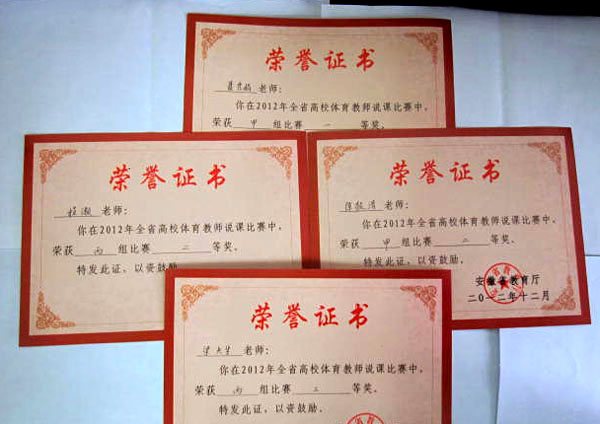 荣誉证书
老师:
你在2012年全省高校体育教师说课比赛中,
荣获 甲 组比赛 一 等奖。
荣誉证书
老师:
你在2012年全省高校体育教师说课比赛中,
荣获 丙 组比赛 二 等奖。
特发此证,以资鼓励。
荣誉证书
老师:
你在2012年全省高校体育教师说课比赛中,
荣获 甲 组比赛 二 等奖。
特发此证,以资鼓励。
安徽省教育厅
二〇一二年十二月
荣誉证书
老师:
你在2012年全省高校体育教师说课比赛中,
荣获 丙 组比赛 二 等奖。
特发此证,以资鼓励。